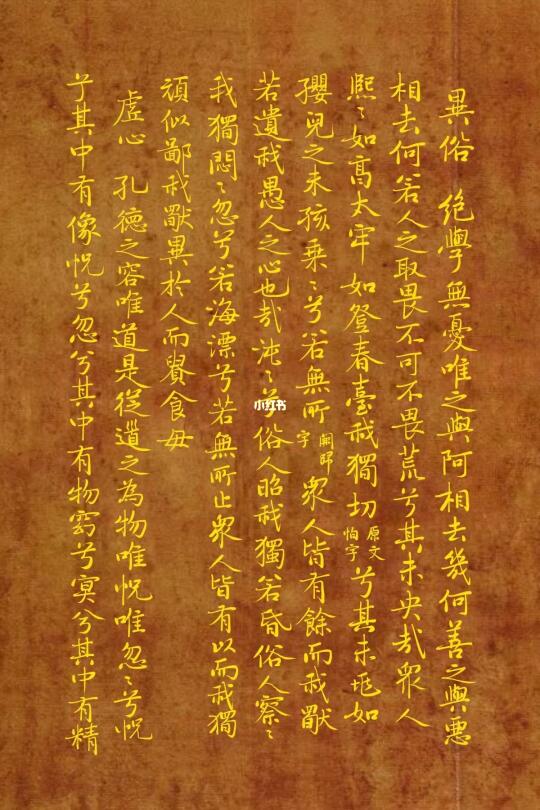 異俗 絶學無憂唯之與阿相去幾何善之與惡
相去何若人之取畏不可不畏荒兮其未央哉衆人
熙〻如高太牢如登春臺我獨切原文怕字兮其未兆如
孾兒之未孩乗〻兮若無所闕歸字衆人皆有餘而我獸
若遺我愚人之心也哉沌〻兮俗人昭我獨若昏俗人察〻
我獨悶〻忽兮若海漂兮若無所止衆人皆有以而我獨
頑似鄙我獸異於人而貴食毋
虛心 孔德之容唯道是從道之為物唯怳唯忽〻兮怳
兮其中有像怳兮忽兮其中有物窈兮冥兮其中有精
小红书